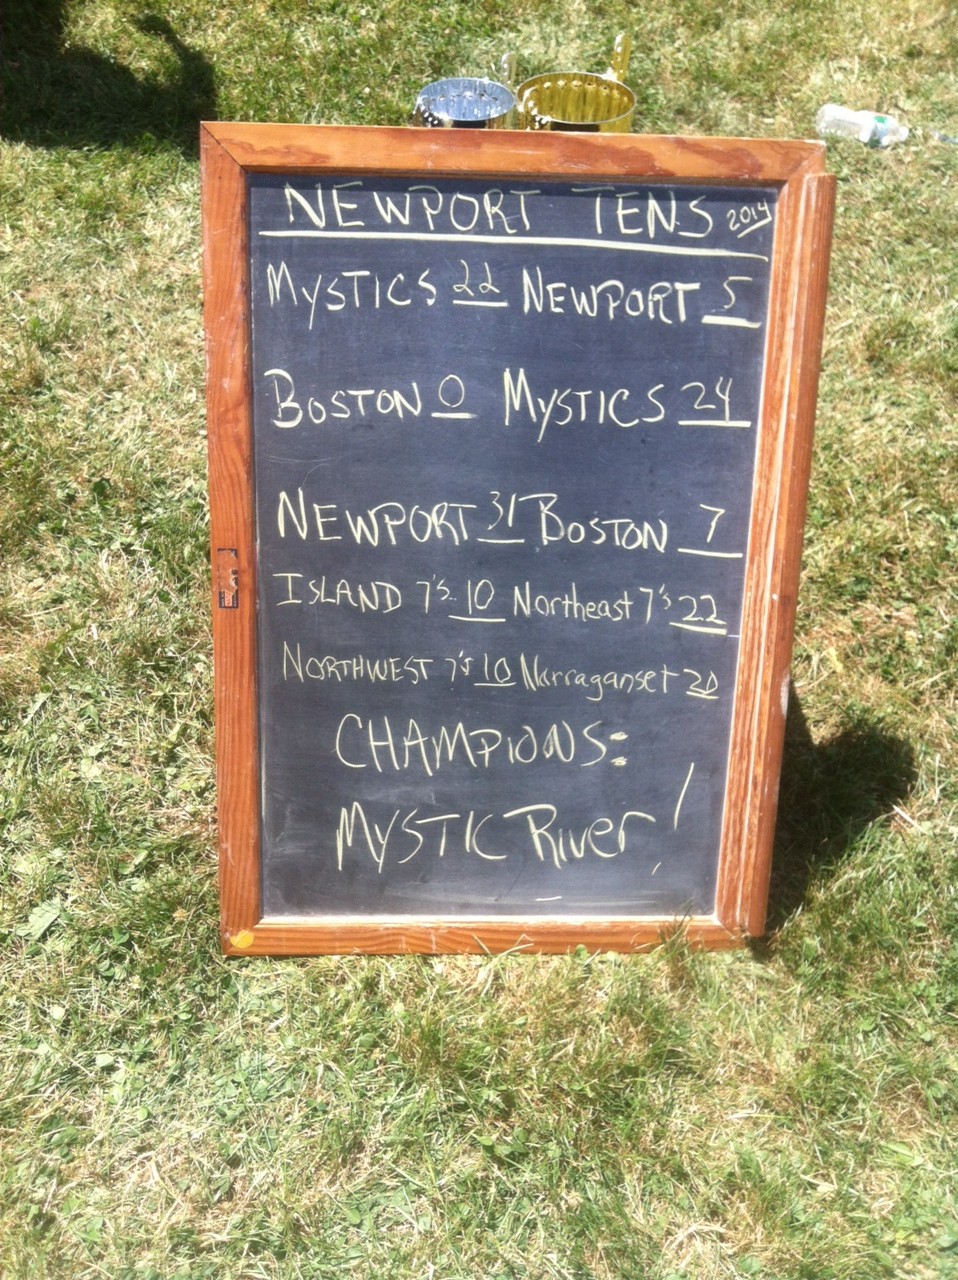 NEWPORT TENS 2014
MYSTICS 22 NEWPORT 5
BOSTON 0 MYSTICS 24
NEWPORT 31 BOSTON 7
ISLAND 7's 10 Northeast 7's 22
NORTHWEST 7's 10 Narraganset 20
CHAMPIONS:
MYSTIC River!